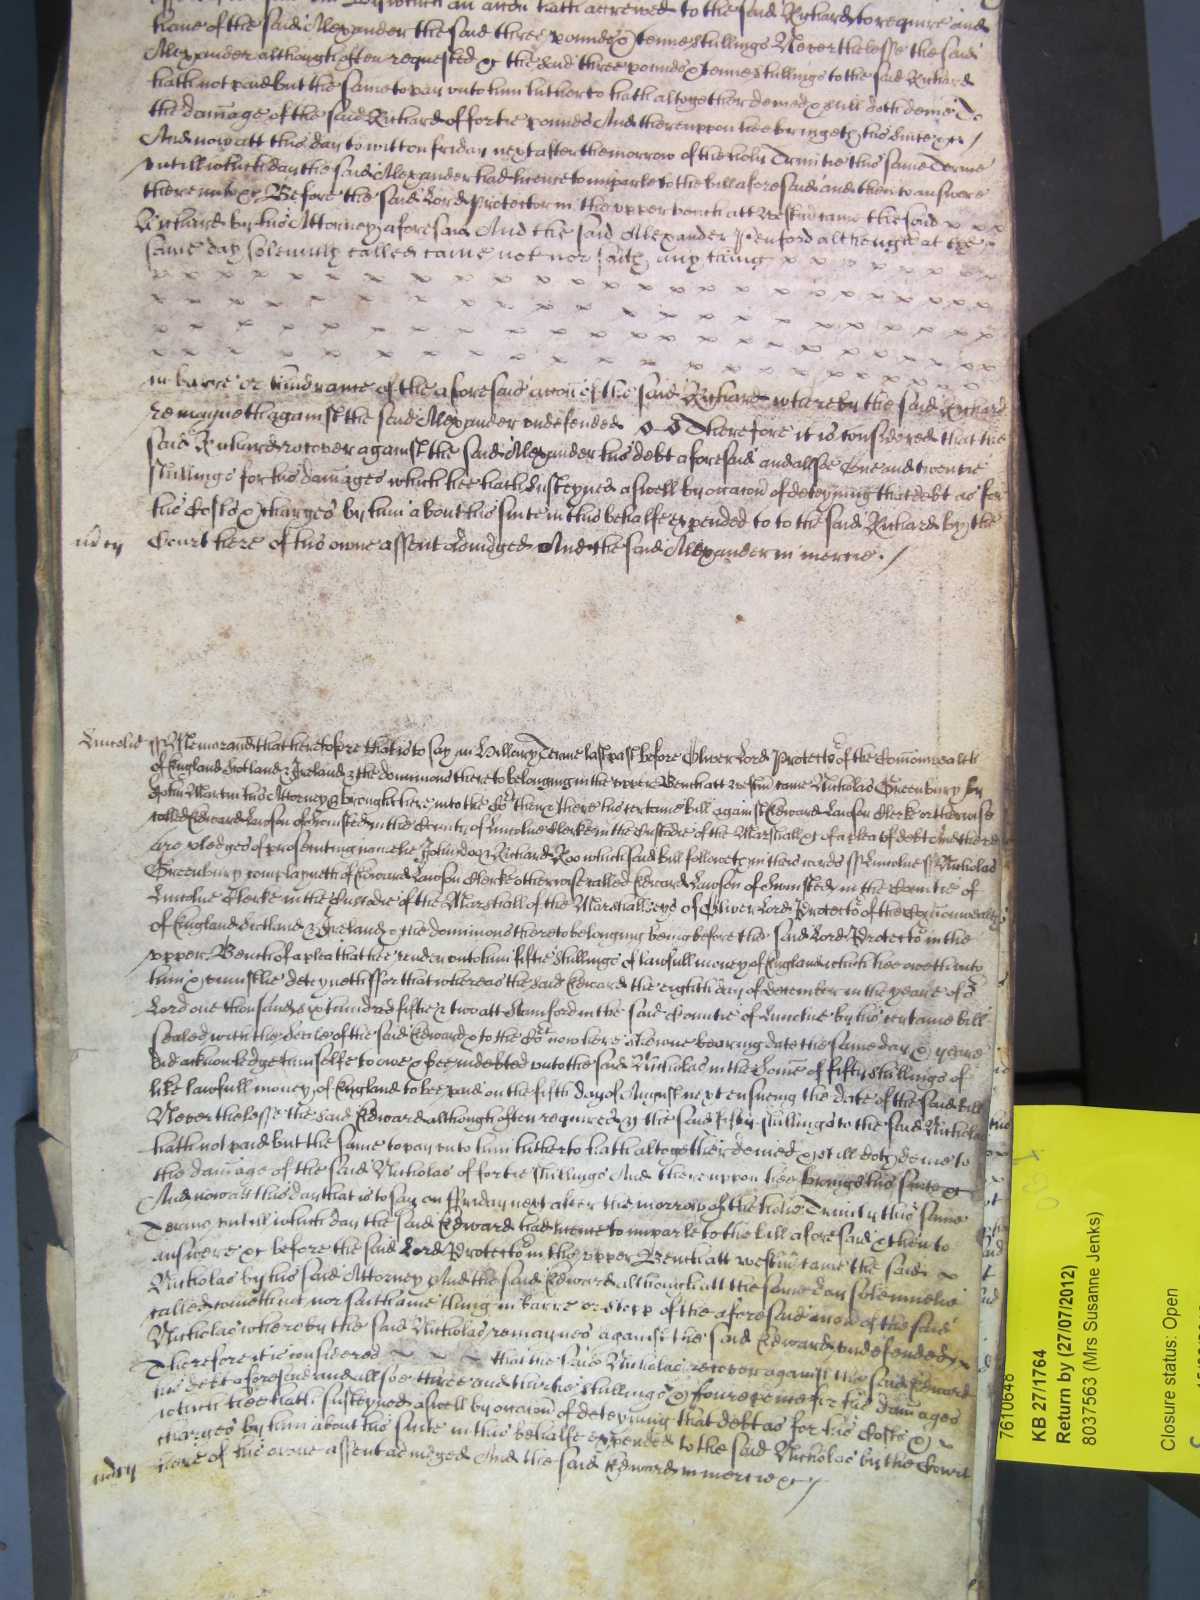 hath accrewed to the said Richard to require and
have of the said Alexander the said three pounds & tenne shillings Neverthelesse the said
Alexander although often requested &c the said three pounds & tenne shillings to the said Richard
hath not paid but the same to pay unto him hitherto hath altogether denied & still doth denie To
the damage of the said Richard of fortie pounds And thereuppon hee bringeth his suite &c /
And now att this day to witt on friday next after the morrow of the holy Trinitie this same Terme
untill which day the said Alexander had licence to imparle to the bill aforesaid and then to answere
thereunto &c Before the said Lord Protector in the upper bench att Westm came the said x x x
Richard by his Attorney aforesaid And the said Alexander Penford although at the
same day solemnly called came not nor saith any thing x x x x x x x
in barre or hindrance of the aforesaid accon of the said Richard whereby the said Richard
remayneth against the said Alexander undefended Therefore it is considered that the
said Richard recover against the said Alexander his debt aforesaid and allsoe One and twentie
shillings for his damages which hee hath susteyned aswell by occacon of deteyning that debt as for
his Costs & charges by him about his suite in this behalfe expended to to the said Richard by the
mercy Court here of his owne assent adiudged And the said Alexander in mercie . /
Lincolne ss Memorand that heretofore that is to say in Hillary Terme last past before Oliver Lord Protector of the Comonwealth
of England Scotland & Ireland & the dominions thereto belonging in the upper Bench att Westm came Nicholas Greenbury by
John Martin his Attorney & brought here into the Cort then & there his certaine bill against Edward Lawson Clerke otherwise
called Edward Lawson of in the County of Lincolne Clerke in the Custodie of the Marshall &c of a plea of debt And there
are pledges of prosecuting namelie John doo & Richard Roo which said bill followeth in theis words ss Lincolne ss Nicholas
Greenbury complayneth of Edward Lawson Clerke otherwise called Edward Lawson of in the Countie of
Lincolne Clerke in the Custodie of the Marshall of the Marshallseys of Oliver Lord Protector of the Comonwealth
of England Scotland & Ireland & the dominions thereto belonging being before the said Lord Protector in the
upper Bench of a plea that hee render unto him fiftie shillings of lawfull money of England which hee oweth unto
him & uniustlie deteyneth ffor that whereas the said Edward the eighth day of december in the yeare of or
Lord one thousand six hundred fiftie & two att Stamford in the said Countie of Lincolne by his certaine bill
sealed with the Seale of the said Edward & to the Cort now here shewne bearing date the same day & yeare
did acknowledge himselfe to owe & bee indebted unto the said Nicholas in the some of fifty shillings of
like lawfull money of England to bee paid on the fifth day of August next ensueing the date of the said bill
Neverthelesse the said Edward although often required &c the said fifty shillings to the said Nicholas
hath not paid but the same to pay unto him hitherto hath altogether denied & still doth denie to
the damage of the said Nicholas of fortie shillings And thereuppon hee brings his suite &c
And now att this day that is to say on ffriday next after the morrow of the holie Trinity this same
Terme untill which day the said Edward had licence to imparle to the bill aforesaid & then to
answere &c before the said Lord Protector in the upper Bench att Westm came the said
Nicholas by his said Attorney And the said Edward although att the same day solemnelie
called cometh not nor saith anie thing in barre or stopp of the aforesaid accon of the said
Nicholas whereby the said Nicholas remaynes against the said Edward undefended
Therefore it is considered that the said Nicholas recover against the said Edward
his debt aforesaid and allsoe three and thirtie shillings & foure pence for his damages
which hee hath susteyned aswell by occacon of deteyning that debt as for his Costs &
charges by him about his suite in this behalfe expended to the said Nicholas by the Court
mercy here of his owne assent adiudged And the said Edward in mercie &c /
7610648
KB 27/1764
Return by (27/07/2012)
8037563 (Mrs Susanne Jenks)
Closure status: Open